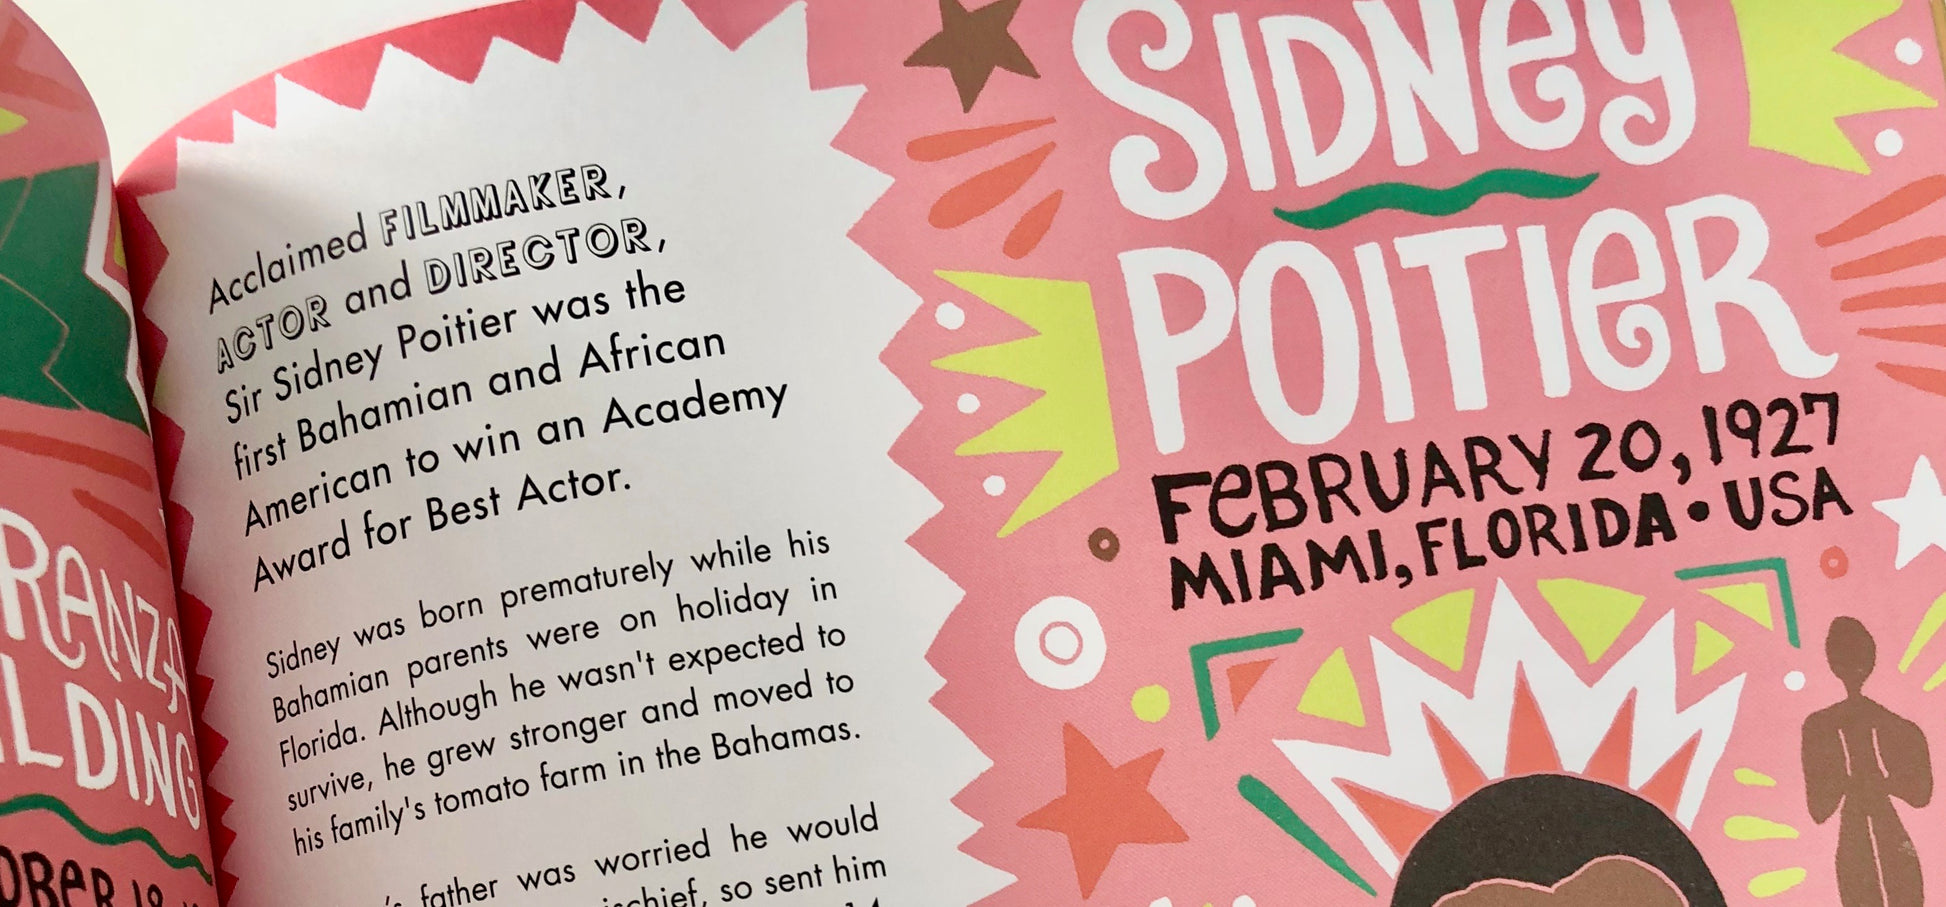 RANZA
LDING
OBER 18
Acclaimed FILMMAKER,
ACTOR and DIRECTOR,
Sir Sidney Poitier was the
first Bahamian and African
American to win an Academy
Award for Best Actor.
Sidney was born prematurely while his
Bahamian parents were on holiday in
Florida. Although he wasn't expected to
survive, he grew stronger and moved to
his family's tomato farm in the Bahamas.
father was worried he would
schief, so sent him
SIDNEY
POITIER
FEBRUARY 20, 1927
MIAMI, FLORIDA • USA